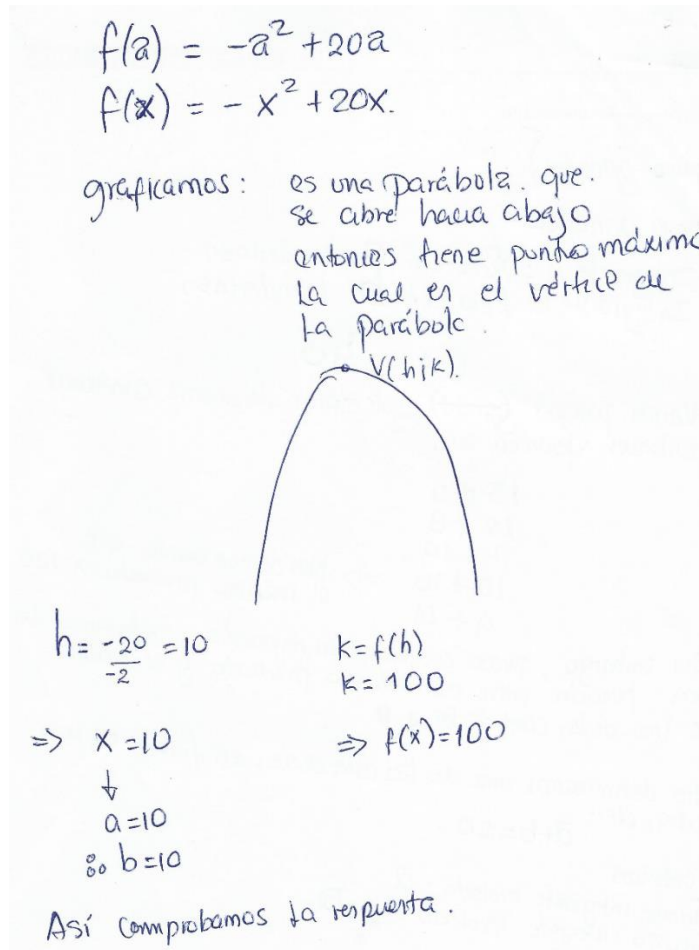 f(a) = -a² + 20a
f(x) = - x² + 20x.
graficamos: es una parábola. que.
se abre hacia abajo
entonces tiene punto máximo
la cual es el vértice de
la parábola.
V(h;k).
h = -20/-2 = 10
k = f(h)
k = 100
⇒ x = 10
⇒ f(x) = 100
↓
a = 10
∴ b = 10
Así comprobamos la respuesta.